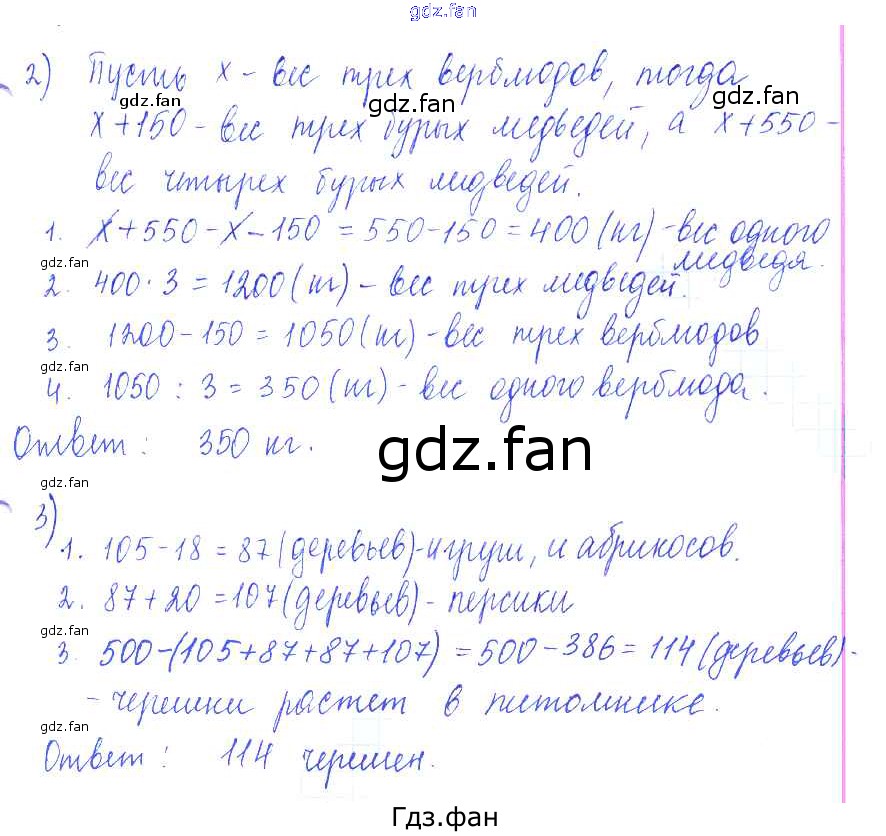 gdz.fan
2) Пусть x - вес трех верблюдов, тогда
gdz.fan gdz.fan gdz.fan
x+150 - вес трех бурых медведей, а x+550 -
вес четырех бурых медведей.
1. x+550-x-150 = 550-150 = 400 (кг) - вес одного
медведя.
gdz.fan
2. 400·3 = 1200 (кг) - вес трех медведей.
3. 1200-150 = 1050 (кг) - вес трех верблюдов
gdz.fan
4. 1050 : 3 = 350 (кг) - вес одного верблюда.
Ответ: 350 кг.
gdz.fan
gdz.fan
3)
1. 105-18 = 87 (деревьев) - и груш, и абрикосов.
2. 87+20 = 107 (деревьев) - персики
gdz.fan
3. 500-(105+87+87+107) = 500-386 = 114 (деревьев) -
- черешни растет в питомнике.
gdz.fan
Ответ: 114 черешен.
Гдз.фан